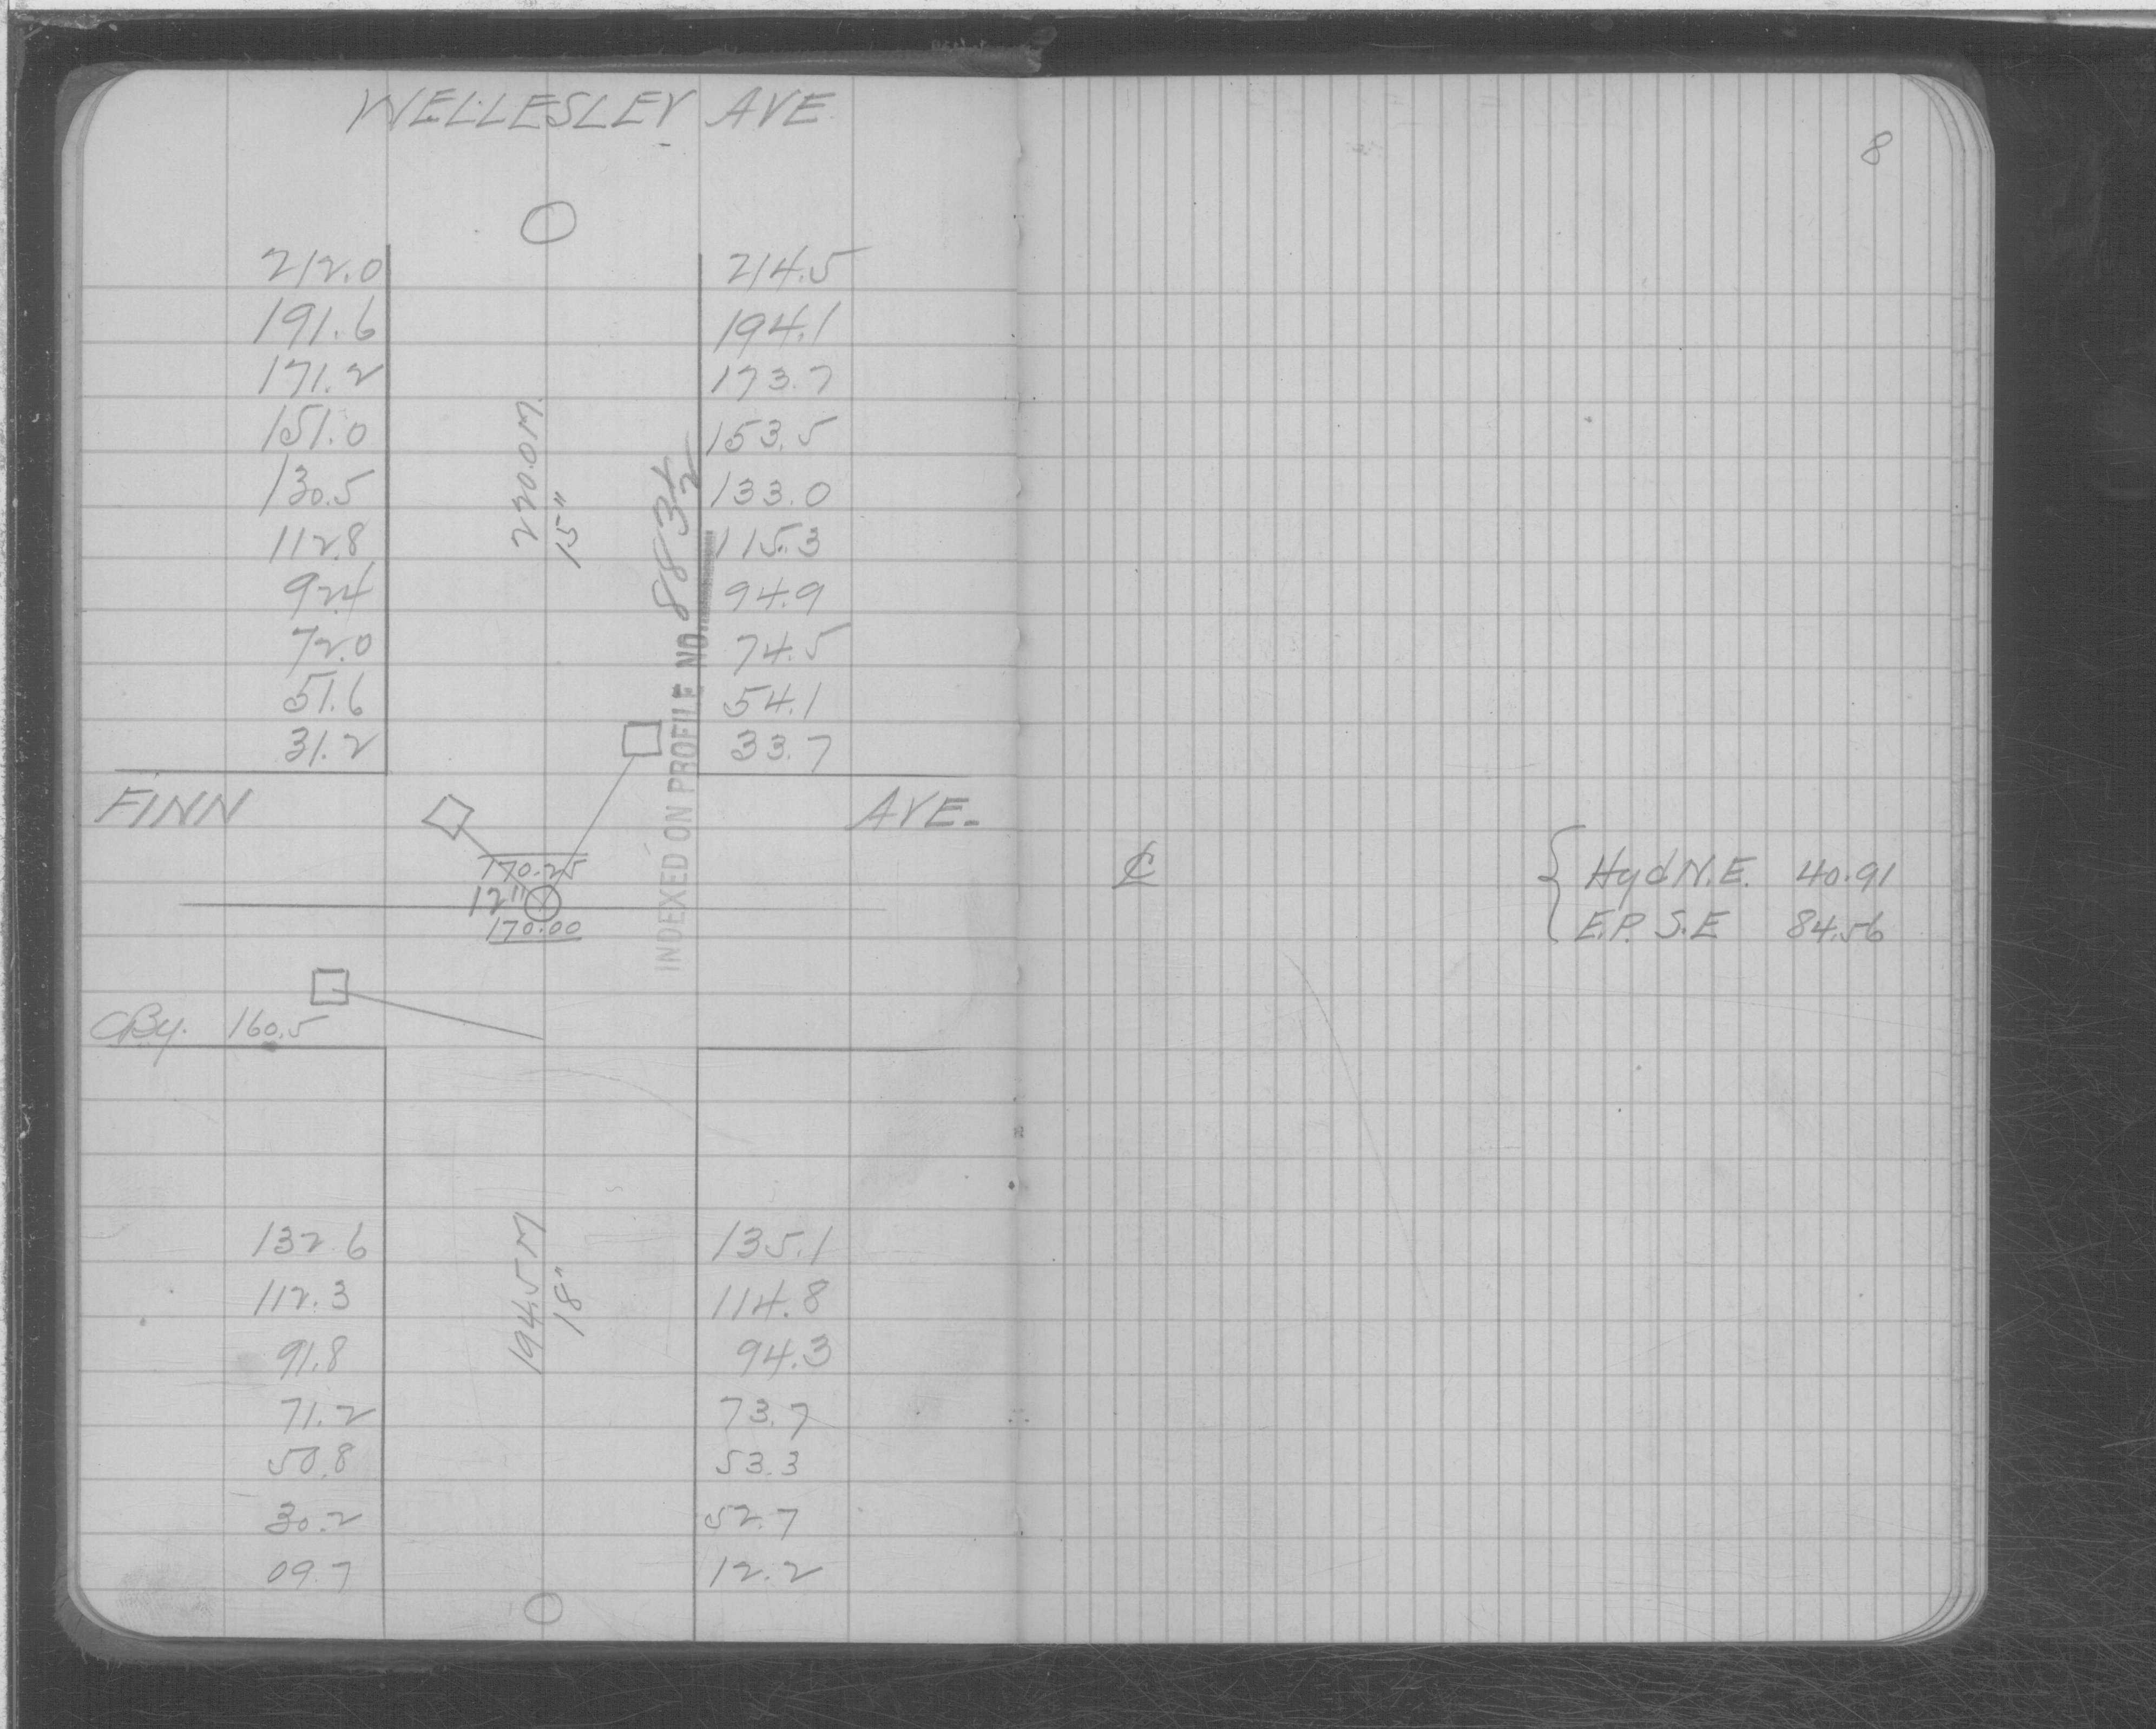 WELLESLEY AVE
8
212.0 214.5
191.6 194.1
171.2 173.7
151.0 153.5
130.5 133.0
112.8 115.3
92.4 94.9
72.0 74.5
51.6 54.1
31.2 33.7
220.0 M.
15"
INDEXED ON PROFILE NO. 883
FINN AVE.
170.25
12"
170.00
℄
Hyd N.E. 40.91
E.P. S.E 84.56
CBy. 160.5
132.6 135.1
112.3 114.8
91.8 94.3
71.2 73.7
50.8 53.3
30.2 52.7
09.7 12.2
194.5 M
18"